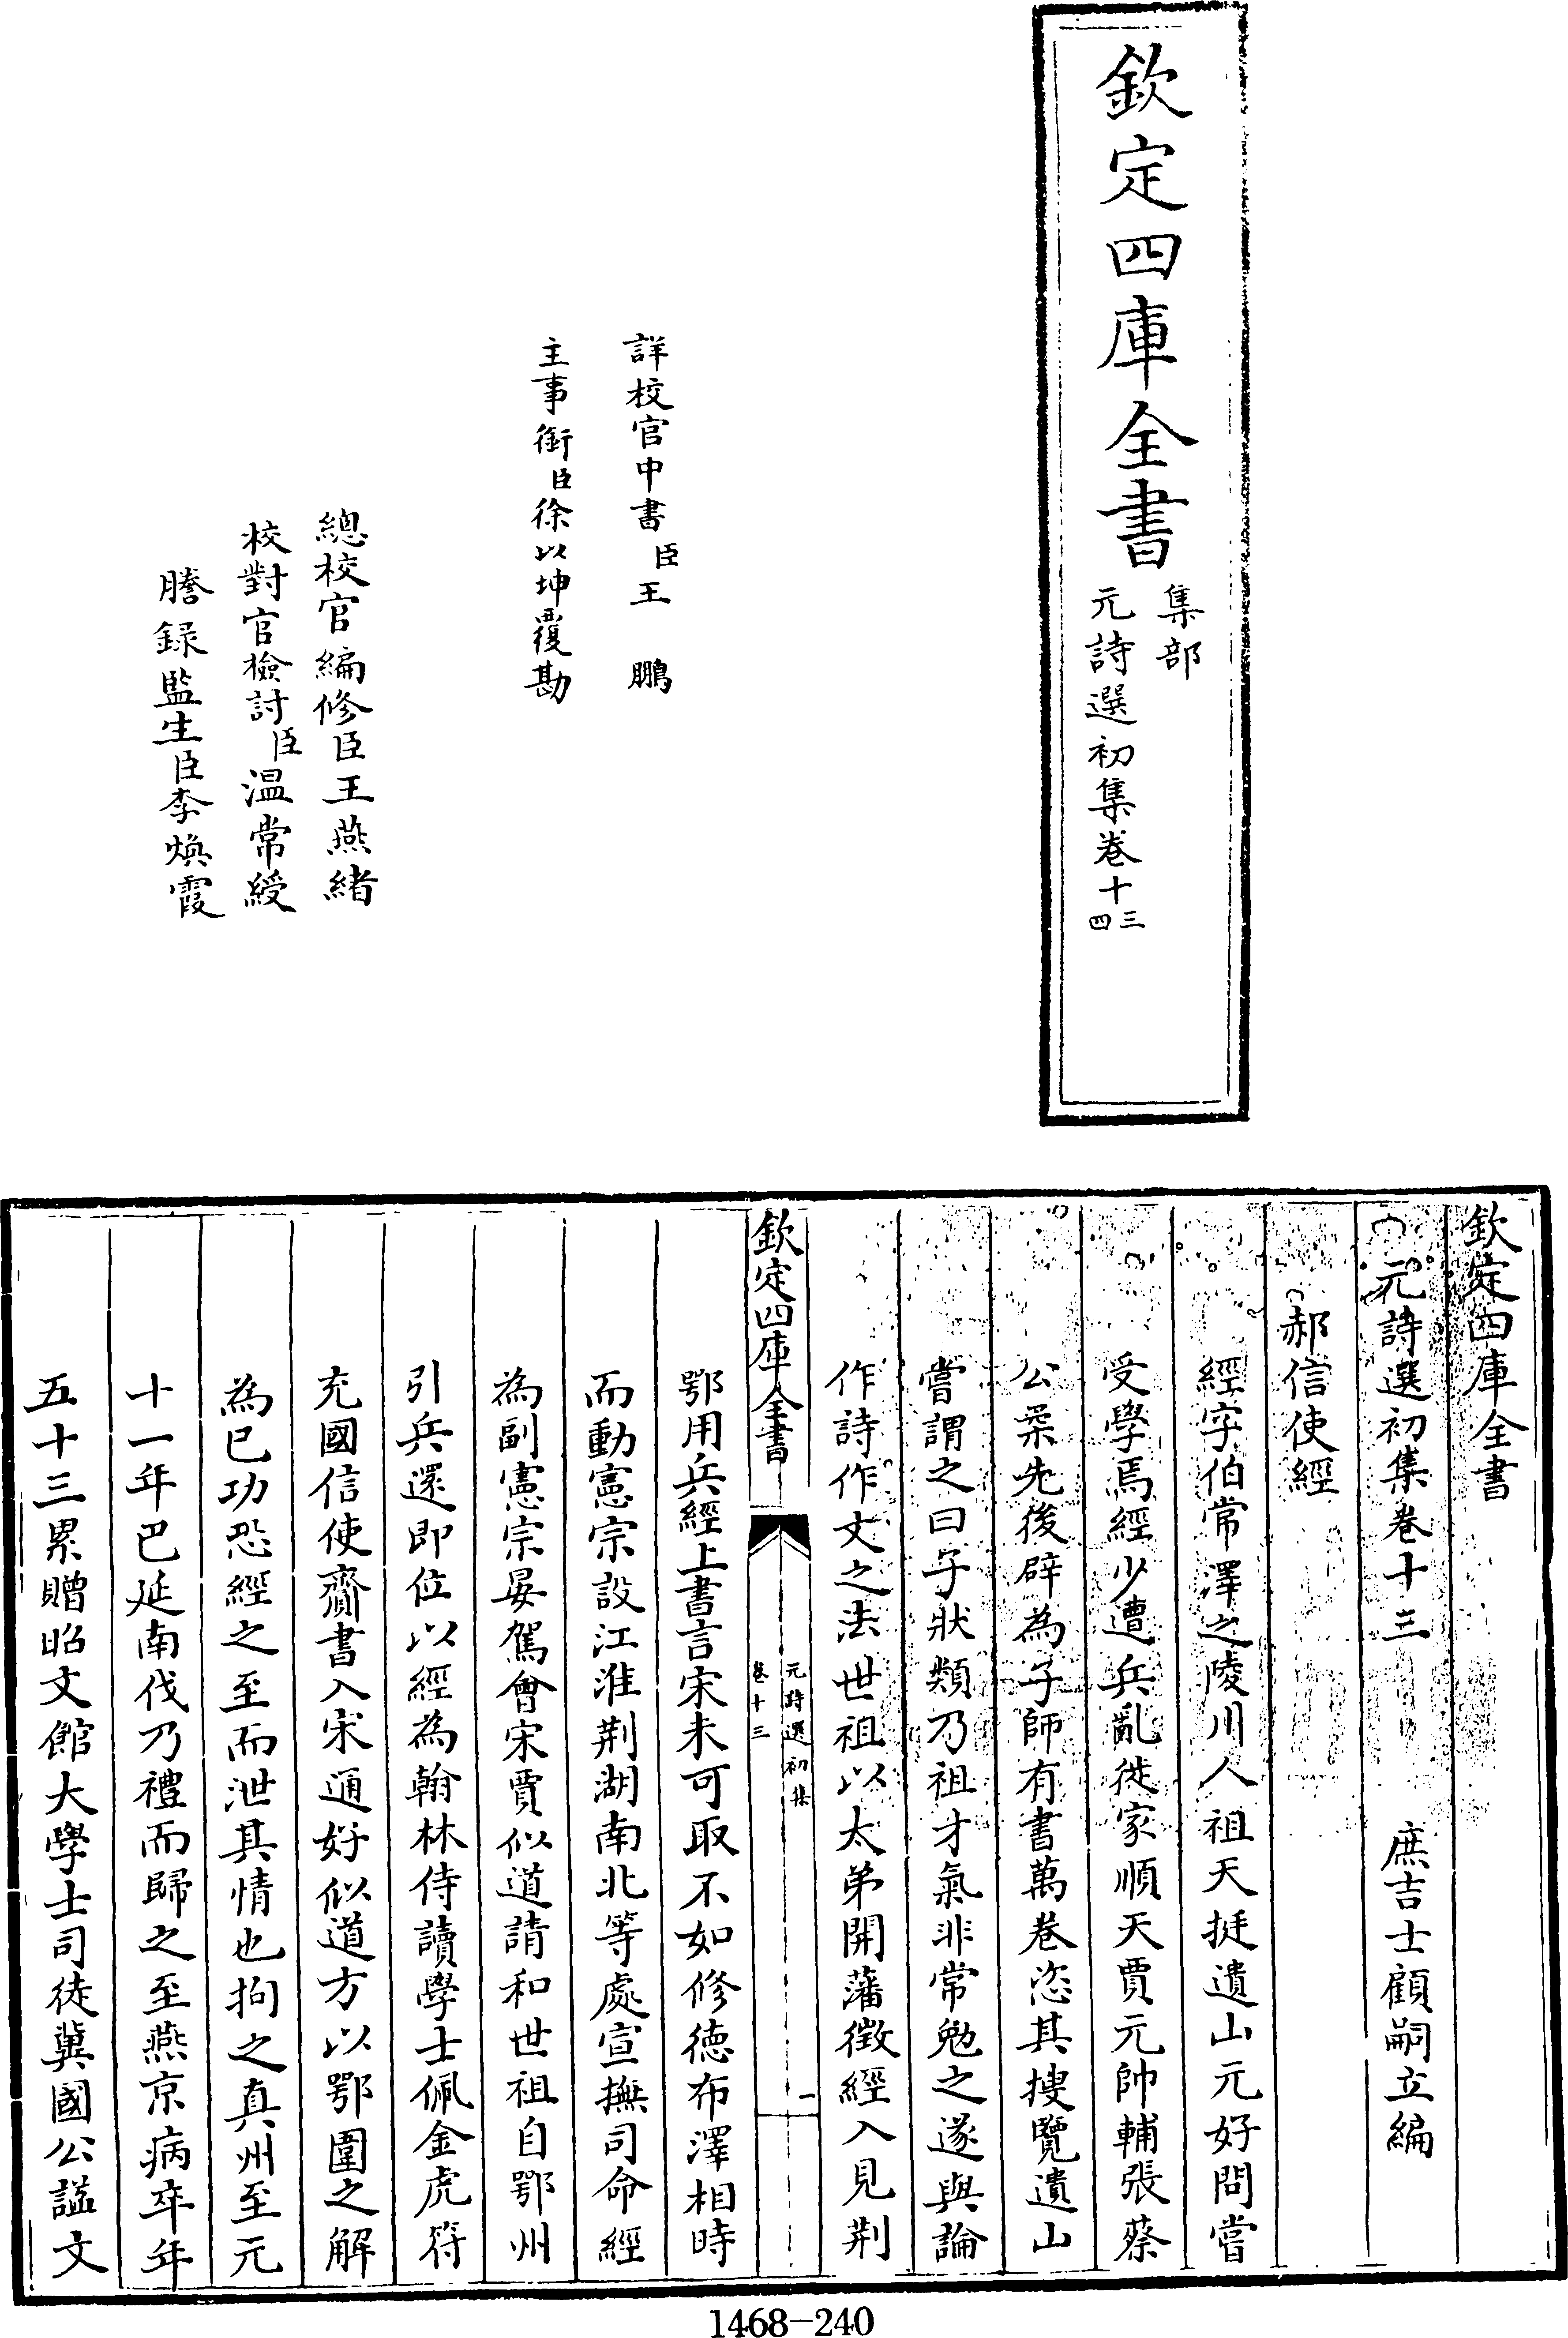 欽定四庫全書
集部
元詩選初集卷十三四
詳校官中書臣王鵬
主事銜臣徐以坤覆勘
總校官編修臣王燕緒
校對官檢討臣温常綬
謄録監生臣李煥霞
欽定四庫全書
元詩選初集卷十三 庶吉士顧嗣立編
郝信使經
經字伯常澤之陵川人祖天挺遺山元好問嘗
受學焉經少遭兵亂徙家順天賈元帥輔張蔡
公柔先後辟為子師有書萬卷恣其搜覽遺山
嘗謂之曰子狀類乃祖才氣非常勉之遂與論
作詩作文之法世祖以太弟開藩徵經入見荆
欽定四庫全書
元詩選初集
卷十三
一
鄂用兵經上書言宋未可取不如修德布澤相時
而動憲宗設江淮荆湖南北等處宣撫司命經
為副憲宗晏駕會宋賈似道請和世祖自鄂州
引兵還即位以經為翰林侍讀學士佩金虎符
充國信使齎書入宋通好似道方以鄂圍之解
為已功恐經之至而泄其情也拘之真州至元
十一年巴延南伐乃禮而歸之至燕京病卒年
五十三累贈昭文館大學士司徒冀國公諡文
1468-240